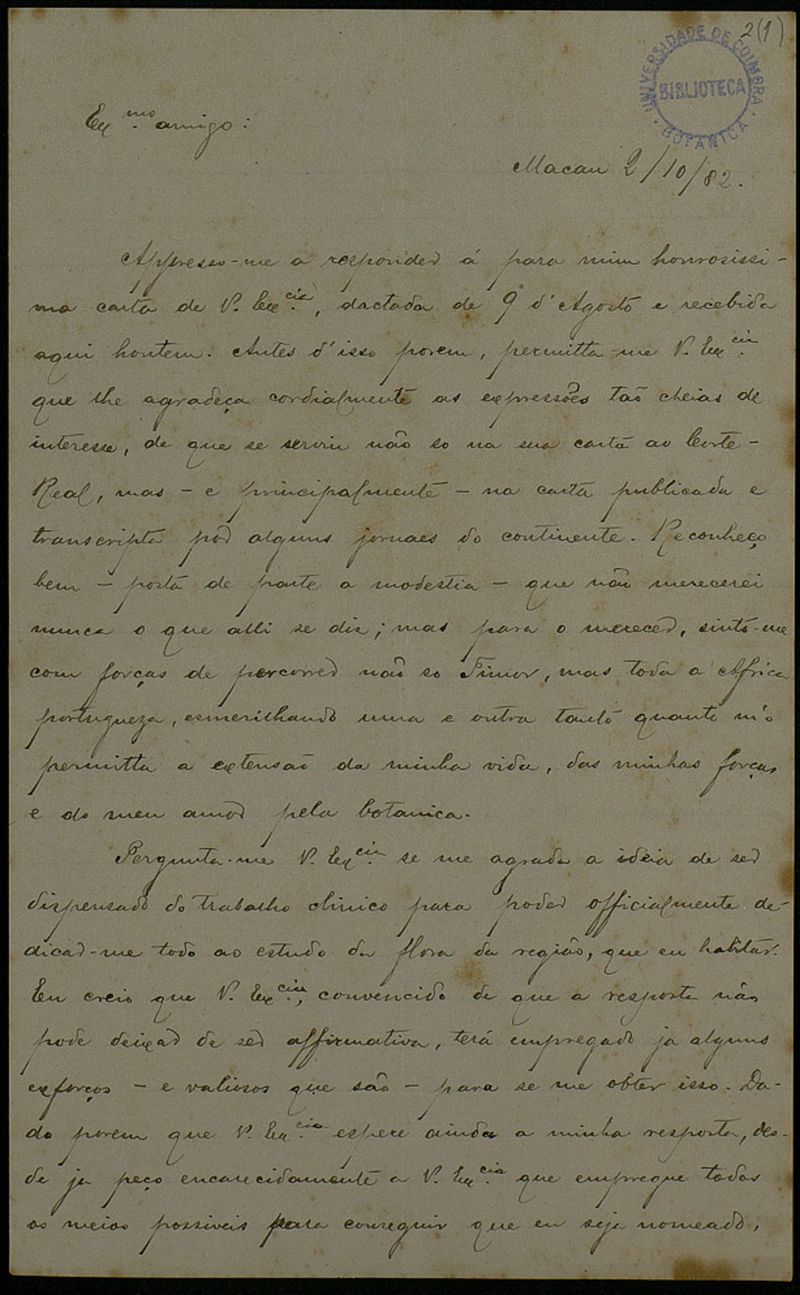 2(1)
UNIVERSIDADE DE COIMBRA
BIBLIOTECA
BOTANICA
Ex.mo amigo:
Macau 2/10/82.
Appresso-me a responder á para mim honrosissi-
ma carta de V. Ex.cia, dactada de 9 d'Agosto e recebida
aqui hontem. Antes d'isso porem, permitta-me V. Ex.cia
que lhe agradeça cordialmente as expressões tão cheias de
interesse, de que se serviu não so na sua carta ao Corte-
Real, mas - e principalmente - na carta publicada e
transcripta por alguns jornaes do continente. Reconheço
bem - posta de parte a modestia - que não merecerei
nunca o que alli se diz; mas para o merecer, sinto-me
com forças de percorrer não so Timor, mas toda a Africa
portugueza, esmerilhando uma e outra tanto quanto m'o
permitta a extensão da minha vida, das minhas forças
e do meu amor pela botanica.
Pergunta-me V. Ex.cia se me agrada a ideia de ser
dispensado do trabalho clinico para poder officialmente de-
dicar-me todo ao estudo da flora da região, que eu habitar.
Eu creio que V. Ex.cia, convencido de que a resposta não
pode deixar de ser affirmativa, terá empregado ja alguns
esforços - e valiosos que são - para se me obter isso. Da-
do porem que V. Ex.cia espere ainda a minha resposta, des-
de ja peço encarecidamente a V. Ex.cia que empregue todos
os meios possiveis para conseguir que eu seja nomeado,